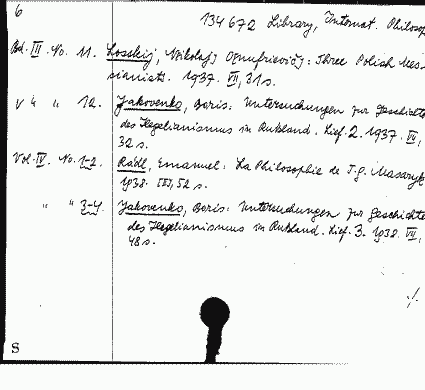 6
134 672 Library, Internat. Philosop
Bd. III. No. 11. Losskij, Nikolaj Onufrievič: Three Polish Mes-
sianists. 1937. VII, 31 s.
v " " 12. Jakovenko, Boris: Untersuchungen zur Geschichte
des Hegelianismus in Rußland. Lief. 2. 1937. VII,
32 s.
Vol. IV. No. 1-2. Rádl, Emanuel: La Philosophie de T. G. Masaryk
1938. III, 52 s.
" " 3-4. Jakovenko, Boris: Untersuchungen zur Geschichte
des Hegelianismus in Rußland. Lief. 3. 1938. VII,
48 s.
./.
S